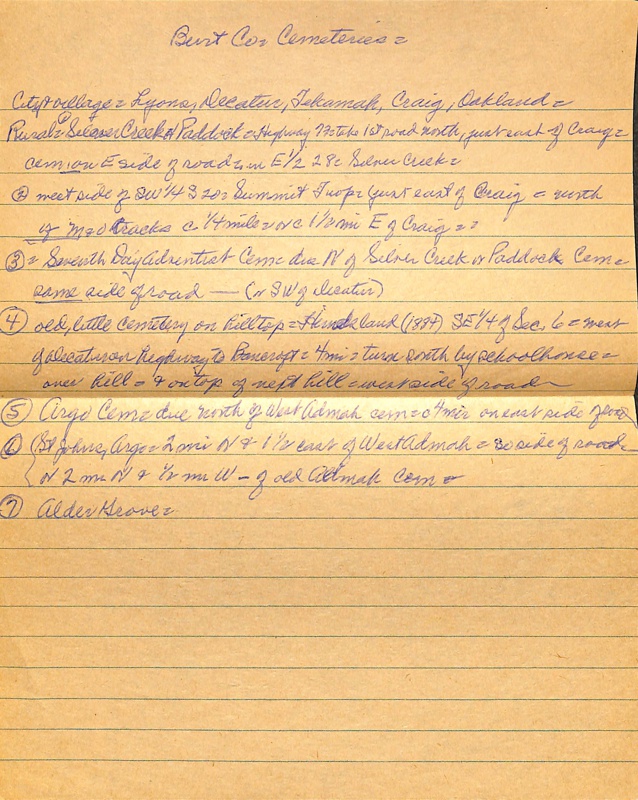 Burt Co= Cemeteries=
City & village= Lyons, Decatur, Tekamah, Craig, Oakland=
Rural= ① Silver Creek or Paddock= Highway 73= take 1st road north, just east of Craig=
cem on E side of road= in E½ 28= Silver Creek=
② west side of SW¼ S 20= Summit Twp= (just east of Craig = north
of M&O tracks c ¼ mile= or c 1½ mi E of Craig = =
③ = Seventh Day Adventist Cem= due N of Silver Creek or Paddock Cem=
same side of road — (or SW of Decatur)
④ old, little cemetery on hilltop= (1884) SE¼ of Sec. 6= west
of Decatur on highway to Bancroft= 4 mi= turn south by schoolhouse=
over hill= & on top of next hill= west side of road=
⑤ Argo Cem= due north of West Admah cem= c 4 mi= on east side of road
⑥ (St Johns, Argo= 2 mi N & 1½ east of West Admah= so side of road=
or 2 mi N & ½ mi W — of old Admah Cem=
⑦ Alder Grove=